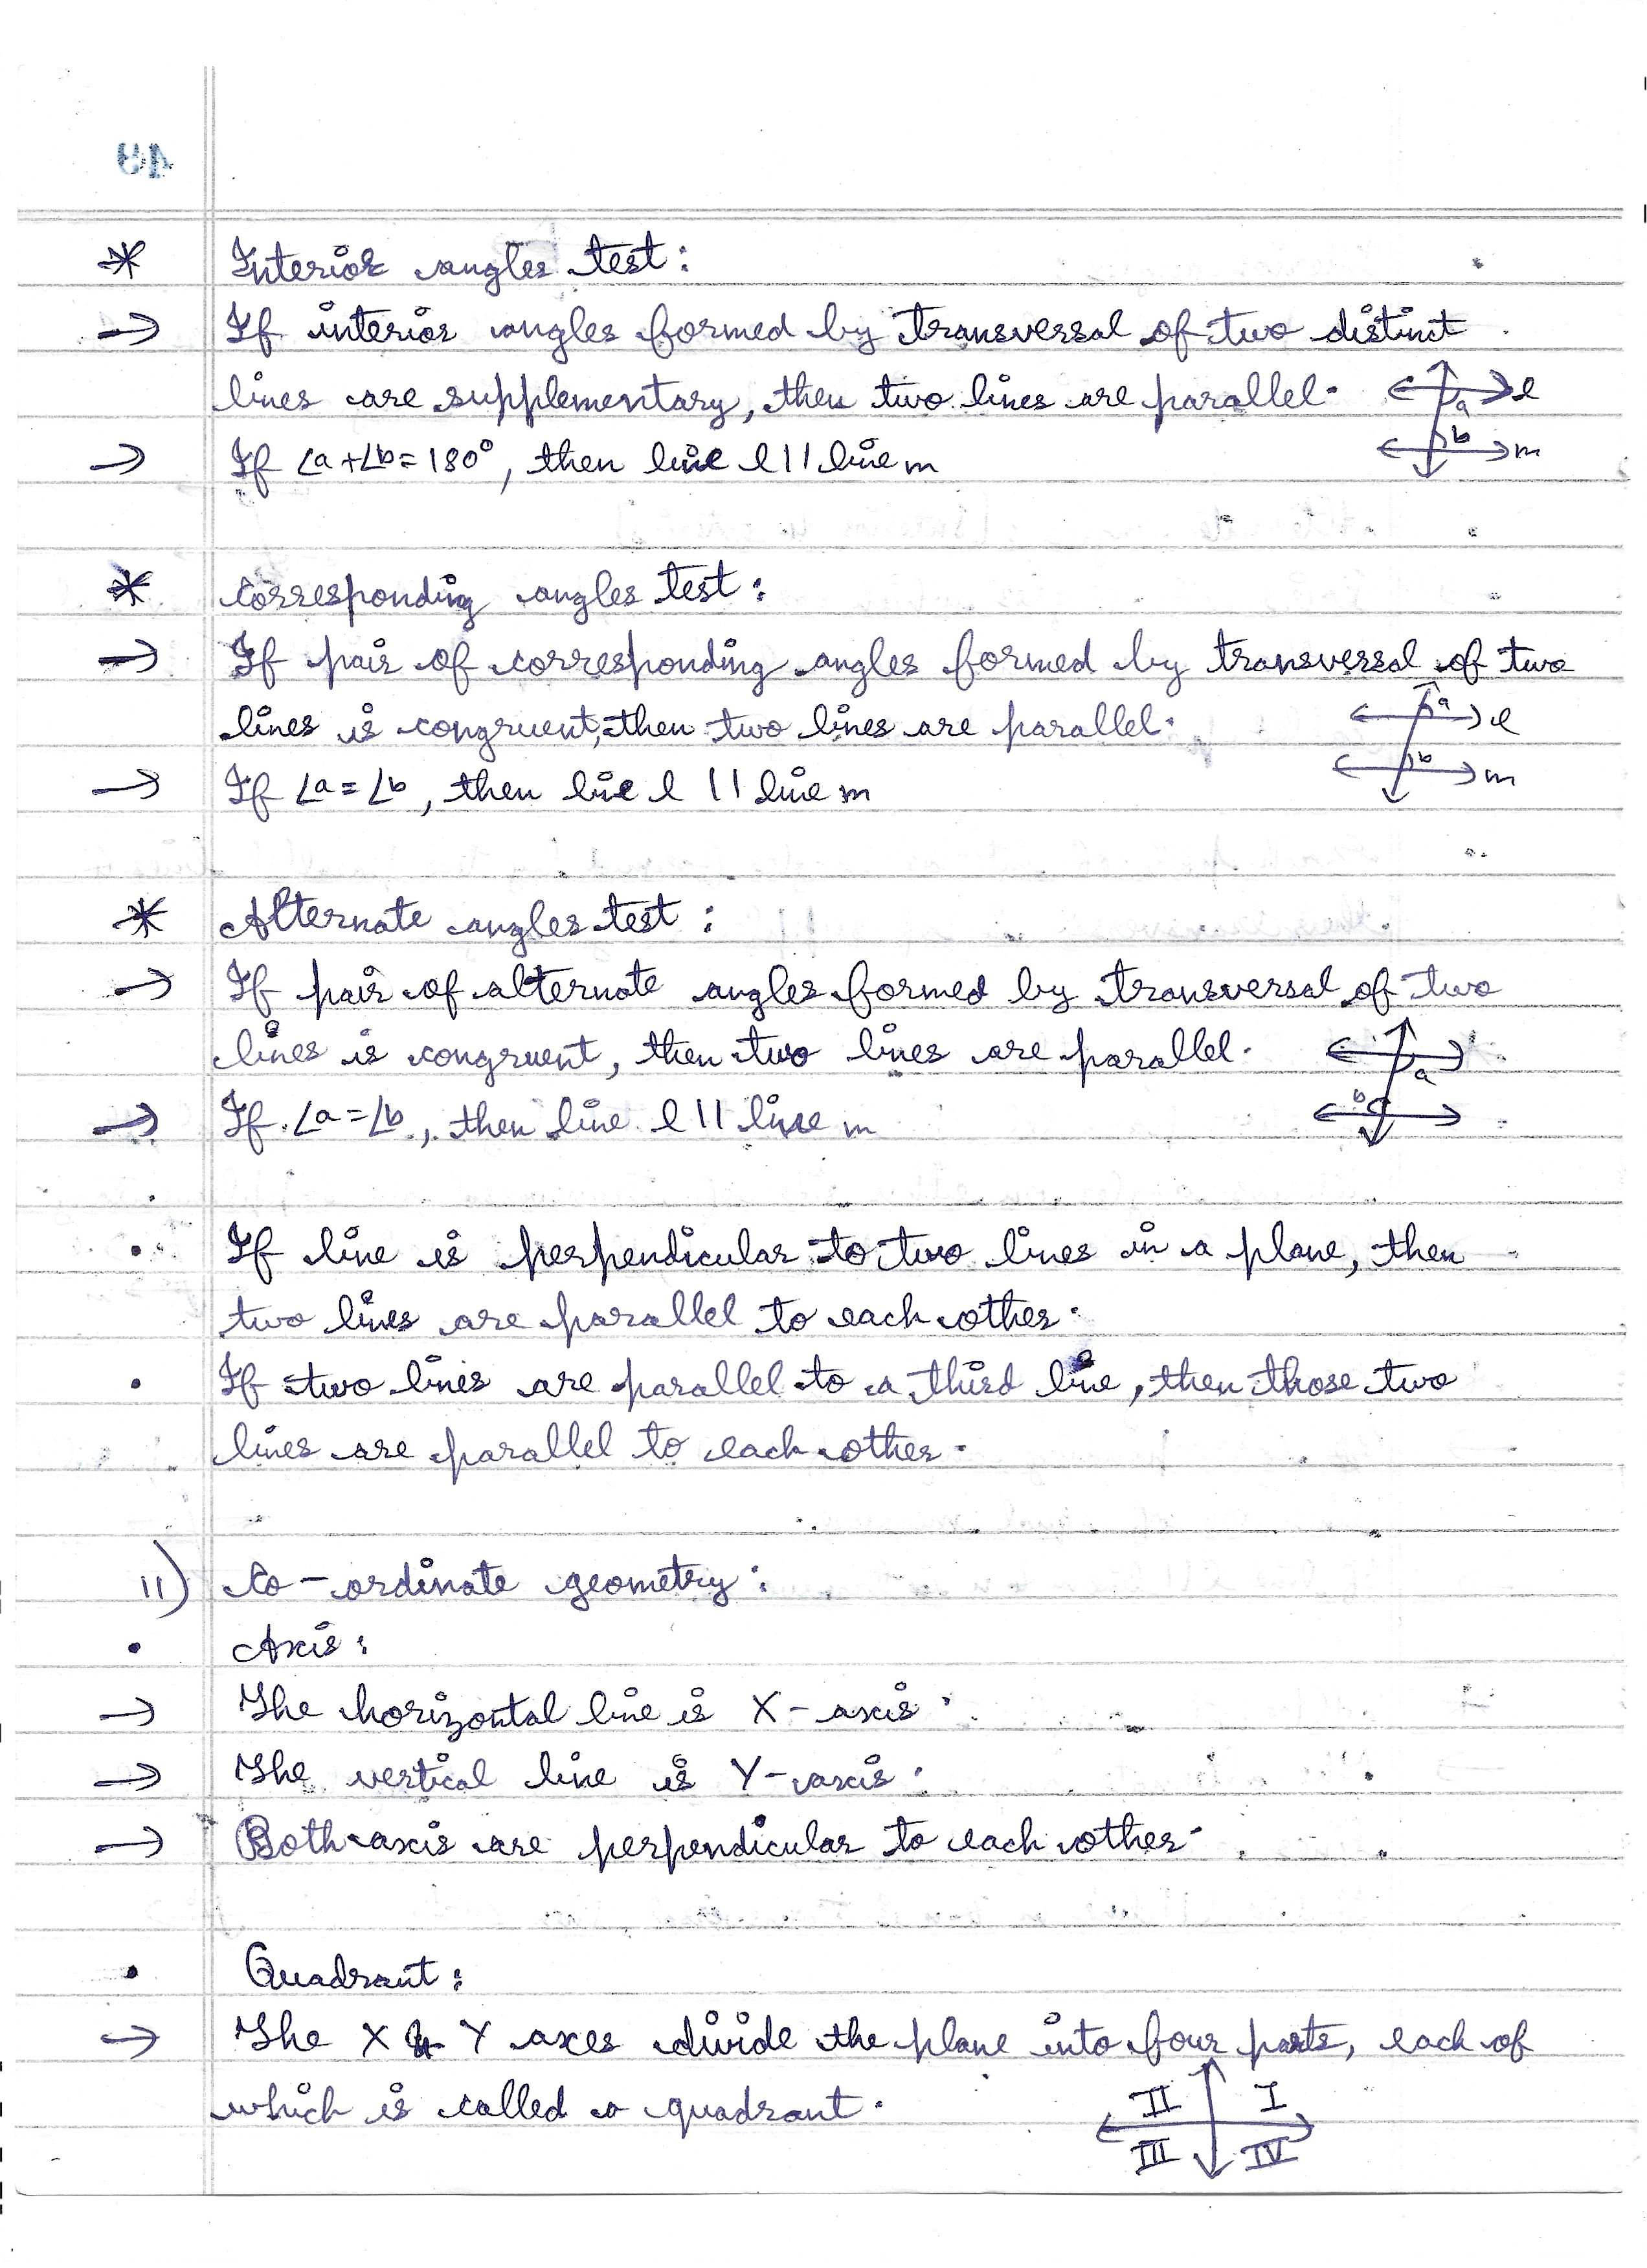 49
* Interior angles test :
→ If interior angles formed by transversal of two distinct
lines are supplementary, then two lines are parallel.
l
a
→ If ∠a+∠b=180°, then line l || line m
b
m
* Corresponding angles test :
→ If pair of corresponding angles formed by transversal of two
lines is congruent, then two lines are parallel.
a
l
→ If ∠a = ∠b, then line l || line m
b
m
* Alternate angles test :
→ If pair of alternate angles formed by transversal of two
lines is congruent, then two lines are parallel.
a
→ If ∠a=∠b, then line l || line m
b
• If line is perpendicular to two lines in a plane, then
two lines are parallel to each other.
• If two lines are parallel to a third line, then those two
lines are parallel to each other.
11) Co-ordinate geometry :
• Axis :
→ The horizontal line is X-axis.
→ The vertical line is Y-axis.
→ Both axis are perpendicular to each other.
• Quadrant :
→ The X & Y axes divide the plane into four parts, each of
which is called a quadrant.
II I
III IV